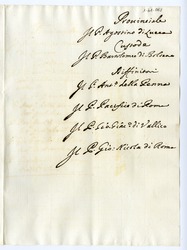 Provinciale
Il P. Agostino di Lucca
Custode
Il P. Bartolomeo di Bolsena
Diffinitori
Il P. Ant.º della Penna
Il P. Pacifico di Roma
Il P. di Vallico
Il P. Gio: Nicola di Roma